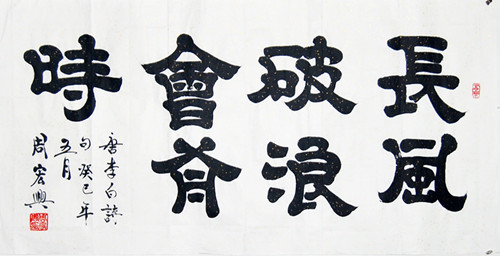 長風
破浪
會有
時
唐李白詩
句癸巳年
五月
周宏興